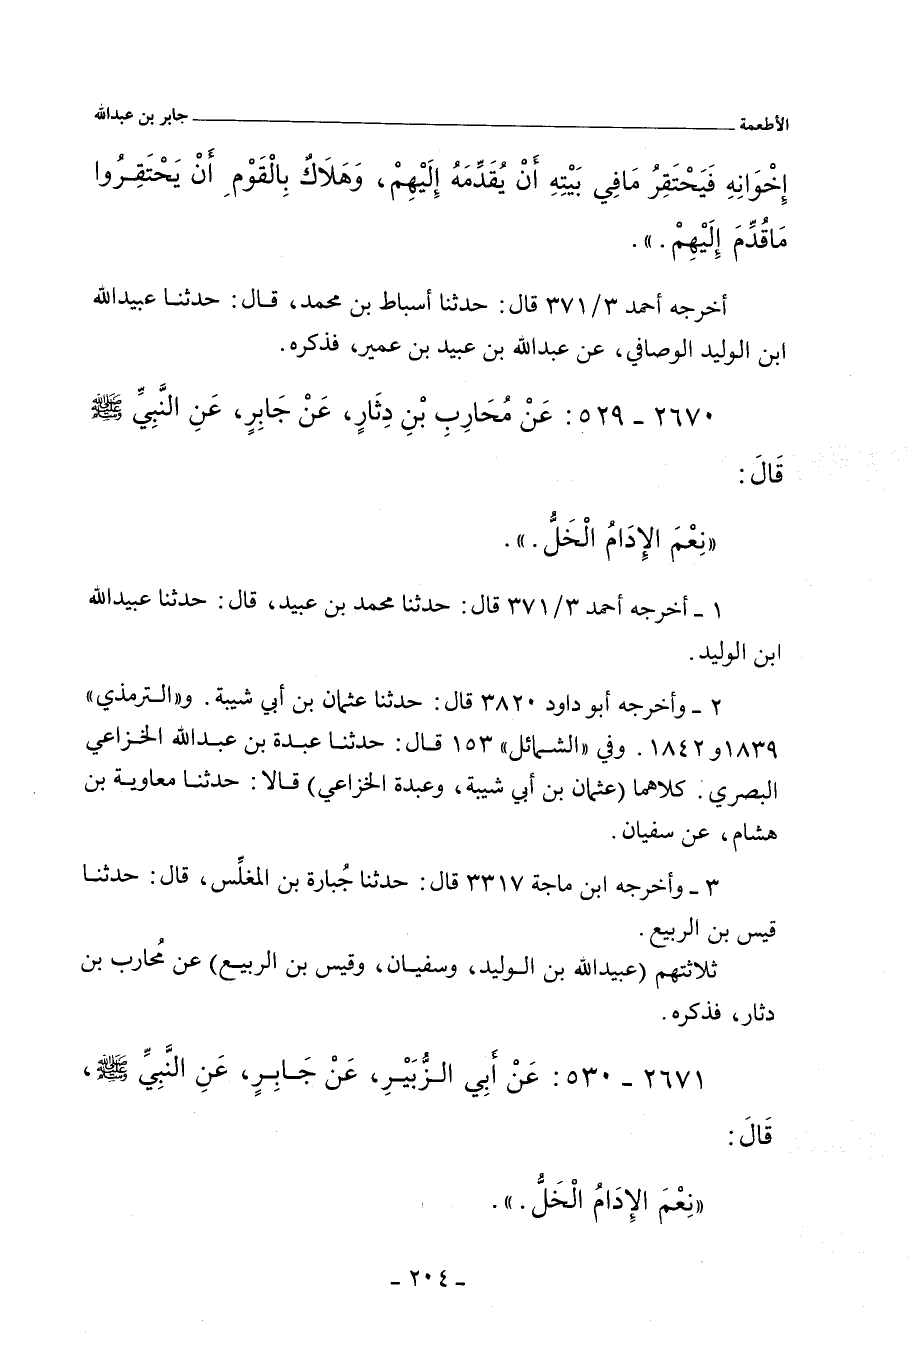 الأطعمة ــــــــــــــــــــ جابر بن عبدالله
إِخْوَانِهِ فَيَحْتَقِرُ مَافِي بَيْتِهِ أَنْ يُقَدِّمَهُ إِلَيْهِمْ، وَهَلَاكٌ بِالْقَوْمِ أَنْ يَحْتَقِرُوا
مَاقُدِّمَ إِلَيْهِمْ.».
أخرجه أحمد ٣٧١/٣ قال: حدثنا أسباط بن محمد، قال: حدثنا عبيدالله
ابن الوليد الوصافي، عن عبدالله بن عبيد بن عمير، فذكره.
٢٦٧٠ ـ ٥٢٩: عَنْ مُحَارِبِ بْنِ دِثَارٍ، عَنْ جَابِرٍ، عَنِ النَّبِيِّ ﷺ
قَالَ:
«نِعْمَ الإِدَامُ الْخَلُّ.».
١ ـ أخرجه أحمد ٣٧١/٣ قال: حدثنا محمد بن عبيد، قال: حدثنا عبيدالله
ابن الوليد.
٢ ـ وأخرجه أبو داود ٣٨٢٠ قال: حدثنا عثمان بن أبي شيبة. و«الترمذي»
١٨٣٩و١٨٤٢. وفي «الشمائل» ١٥٣ قال: حدثنا عبدة بن عبدالله الخزاعي
البصري. كلاهما (عثمان بن أبي شيبة، وعبدة الخزاعي) قالا: حدثنا معاوية بن
هشام، عن سفيان.
٣ ـ وأخرجه ابن ماجة ٣٣١٧ قال: حدثنا جُبارة بن المغلِّس، قال: حدثنا
قيس بن الربيع.
ثلاثتهم (عبيدالله بن الوليد، وسفيان، وقيس بن الربيع) عن مُحارب بن
دثار، فذكره.
٢٦٧١ ـ ٥٣٠: عَنْ أَبِي الزُّبَيْرِ، عَنْ جَابِرٍ، عَنِ النَّبِيِّ ﷺ،
قَالَ:
«نِعْمَ الإِدَامُ الْخَلُّ.».
ـ ٢٠٤ ـ